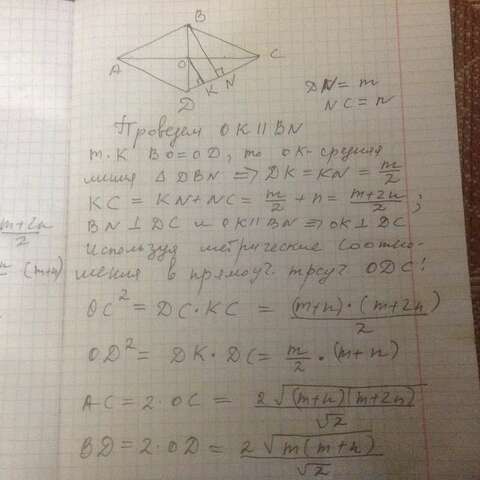 B
A
O
C
K
N
D
DN = m
NC = n
Проведем OK || BN
т.к BO = OD, то OK - средняя
линия Δ DBN => DK = KN = m/2
KC = KN + NC = m/2 + n = (m+2n)/2 ;
BN ⊥ DC и OK || BN => OK ⊥ DC
Используя метрические соотно-
шения в прямоуг. треуг. ODC:
OC² = DC · KC = (m+n) · (m+2n)/2
OD² = DK · DC = m/2 · (m+n)
AC = 2 · OC = 2√(m+n)(m+2n)/√2
BD = 2 · OD = 2√m(m+n)/√2
m+2n/2
(m+n)